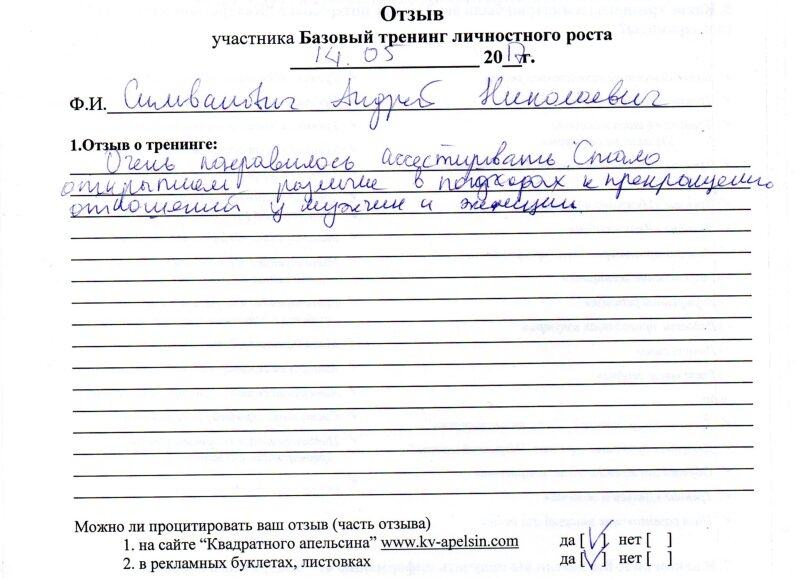 Отзыв
участника Базовый тренинг личностного роста
14.05 2017г.
Ф.И. Силванович Андрей Николаевич
1.Отзыв о тренинге:
Очень понравилось ассестировать. Стало
открытием разные в подходах к прекращению
отношений у мужчин и женщин
Можно ли процитировать ваш отзыв (часть отзыва)
1. на сайте “Квадратного апельсина” www.kv-apelsin.com да [V] нет [ ]
2. в рекламных буклетах, листовках да [V] нет [ ]